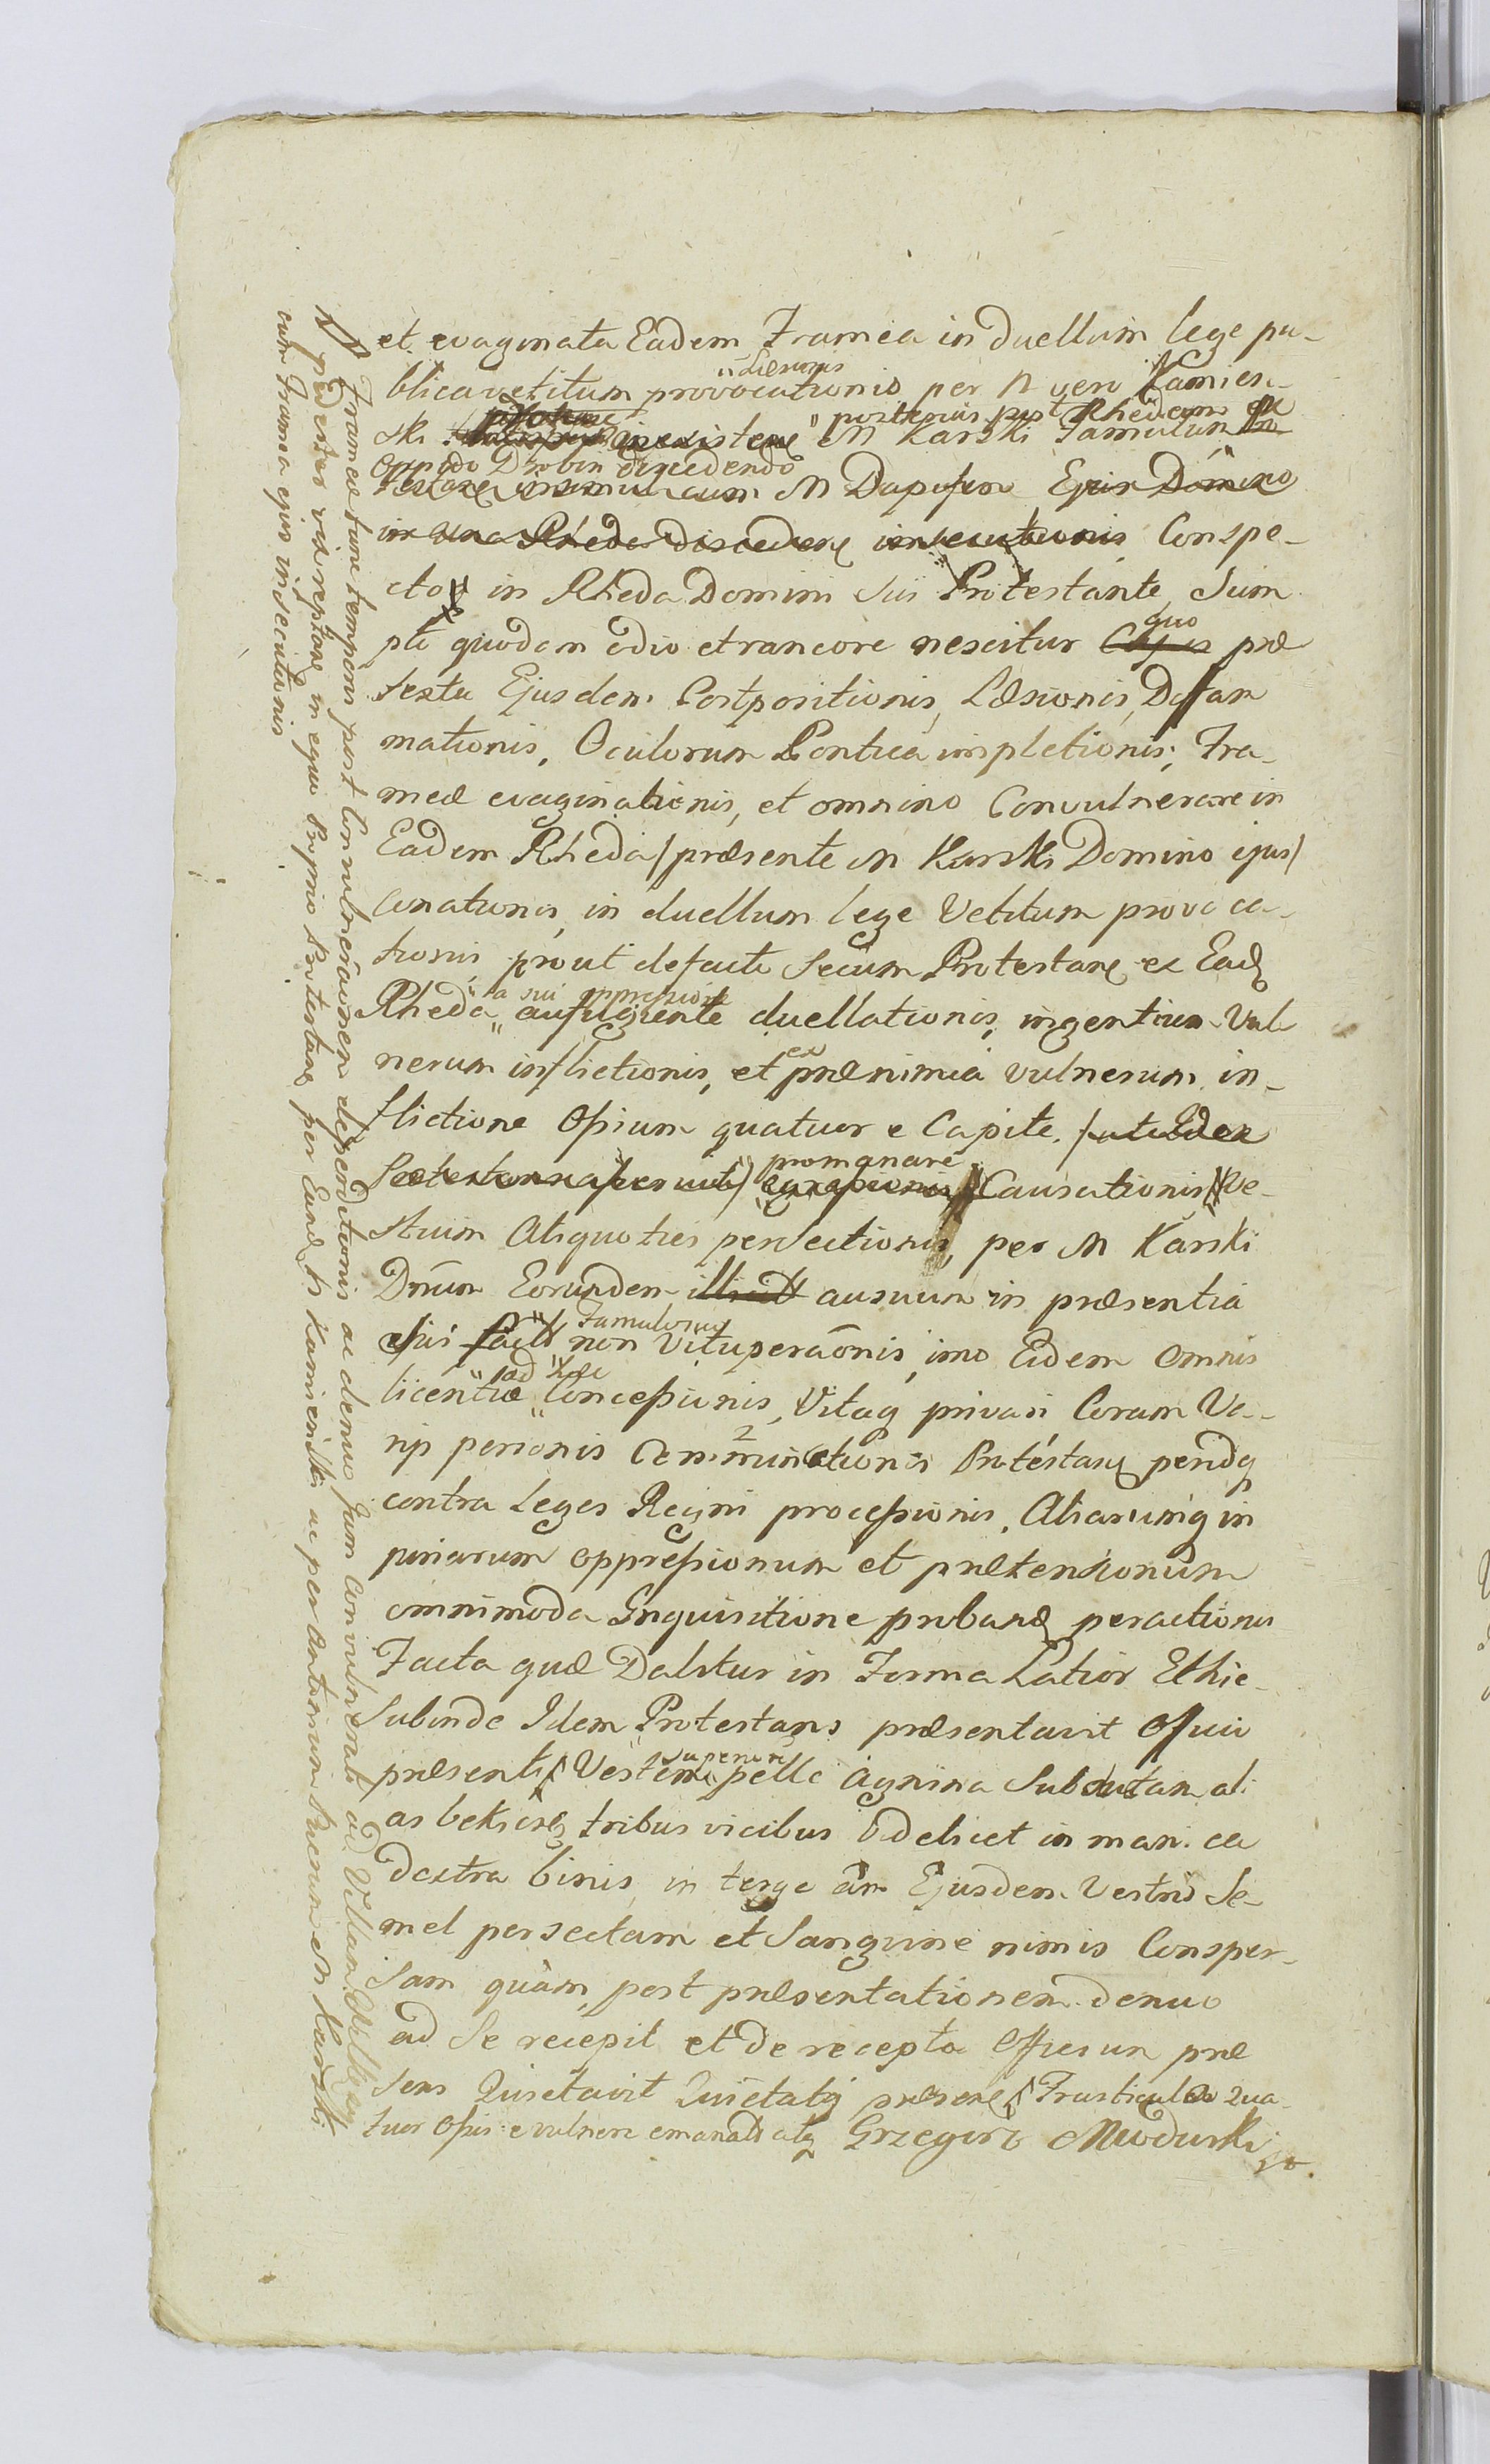 et evaginata Eadem Framea in duellum lege pu-
blica vetitum provocationis per N vero Kamien-
"Læsionis
ski inexistenę M Karski Famulum
" posterius post Rhedam ex
Oppido Drobin discedendo
insimul cum M Dapifero Ejus Domino
in una Rheda discedenę insecutionis Conspe-
cto in Rheda Domini sui Protestante, Sum
pto quodam odio et rancore nescitur Cujus præ
quo
textu Ejusdem Postpositionis, Læsionis, Defam
mationis, Oculorum Pontica impletionis, Fra-
meæ evaginationis, et omnino Convulnerare in
Eadem Rheda /præsente M Karski Domino ejus/
conationis, in duellum lege Vetitum provoca-
tionis, prout defacto secum Protestanę ex Eadę
Rheda aufugiente duellationis, ingentium Vul-
" a sui oppressione
nerum inflictionis, et præ nimia vulnerum in-
ex
flictione Ossium quatuor e Capite
promanare
Causationis Ve-
stium Aliquoties persectionis, per M Karski
Dnum Eorundem ausuum in præsentia
sui facto non Vituperaōnis, imo Eidem omnis
Famulorum
licentiæ Concessionis, Vitaq privari Coram Va-
" ad hoc
rijs personis Comminationis Protestanę pendq
contra Leges Regni processionis, Aliarumq in
juriarum oppressionum et prætensionum
omnimoda Inquisitione probanę peractionis
Facta quæ Dabitur in Forma Latior Ethic-
Subinde Idem Protestans præsentavit Officio
præsenti Vestem pelle Agnina Subdutam ali
superiorę
as bekieszę tribus vicibus videlicet in manica
dextra binis, in tergo am Ejusdem Vestris Se-
mel persectam et Sanguine nimis Consper-
sam quam post præsentationem denuo
ad Se recepit et de recepta Officium præ
sens Quietavit Quietatq præsenę Frusticula Qua-
tuor Ossis e vulnere emanata atq Grzegorz Mioduski
Frameæ tunc temporis post Convulneraōnem deperditionis ac denuo Jam Convulnerati ad Villam
pedester vix reptanę in equo Proprio Protestanę per Eundę N Kamienski ac per Antonium Puerum M Karski
cum Framea ejus insecutionis